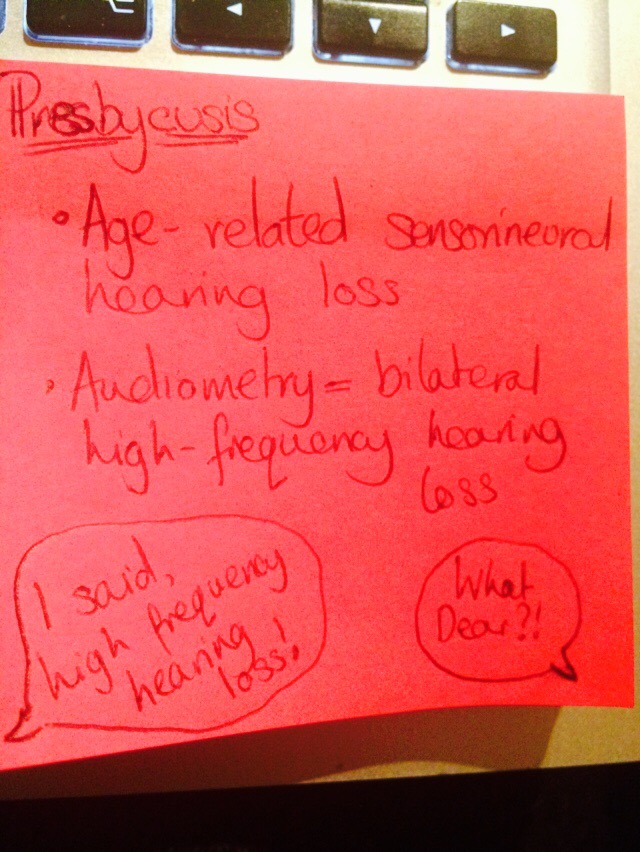 Presbycusis
• Age-related sensorineural
hearing loss
• Audiometry = bilateral
high-frequency hearing
loss
I said,
high frequency
hearing
loss!
What
Dear?!